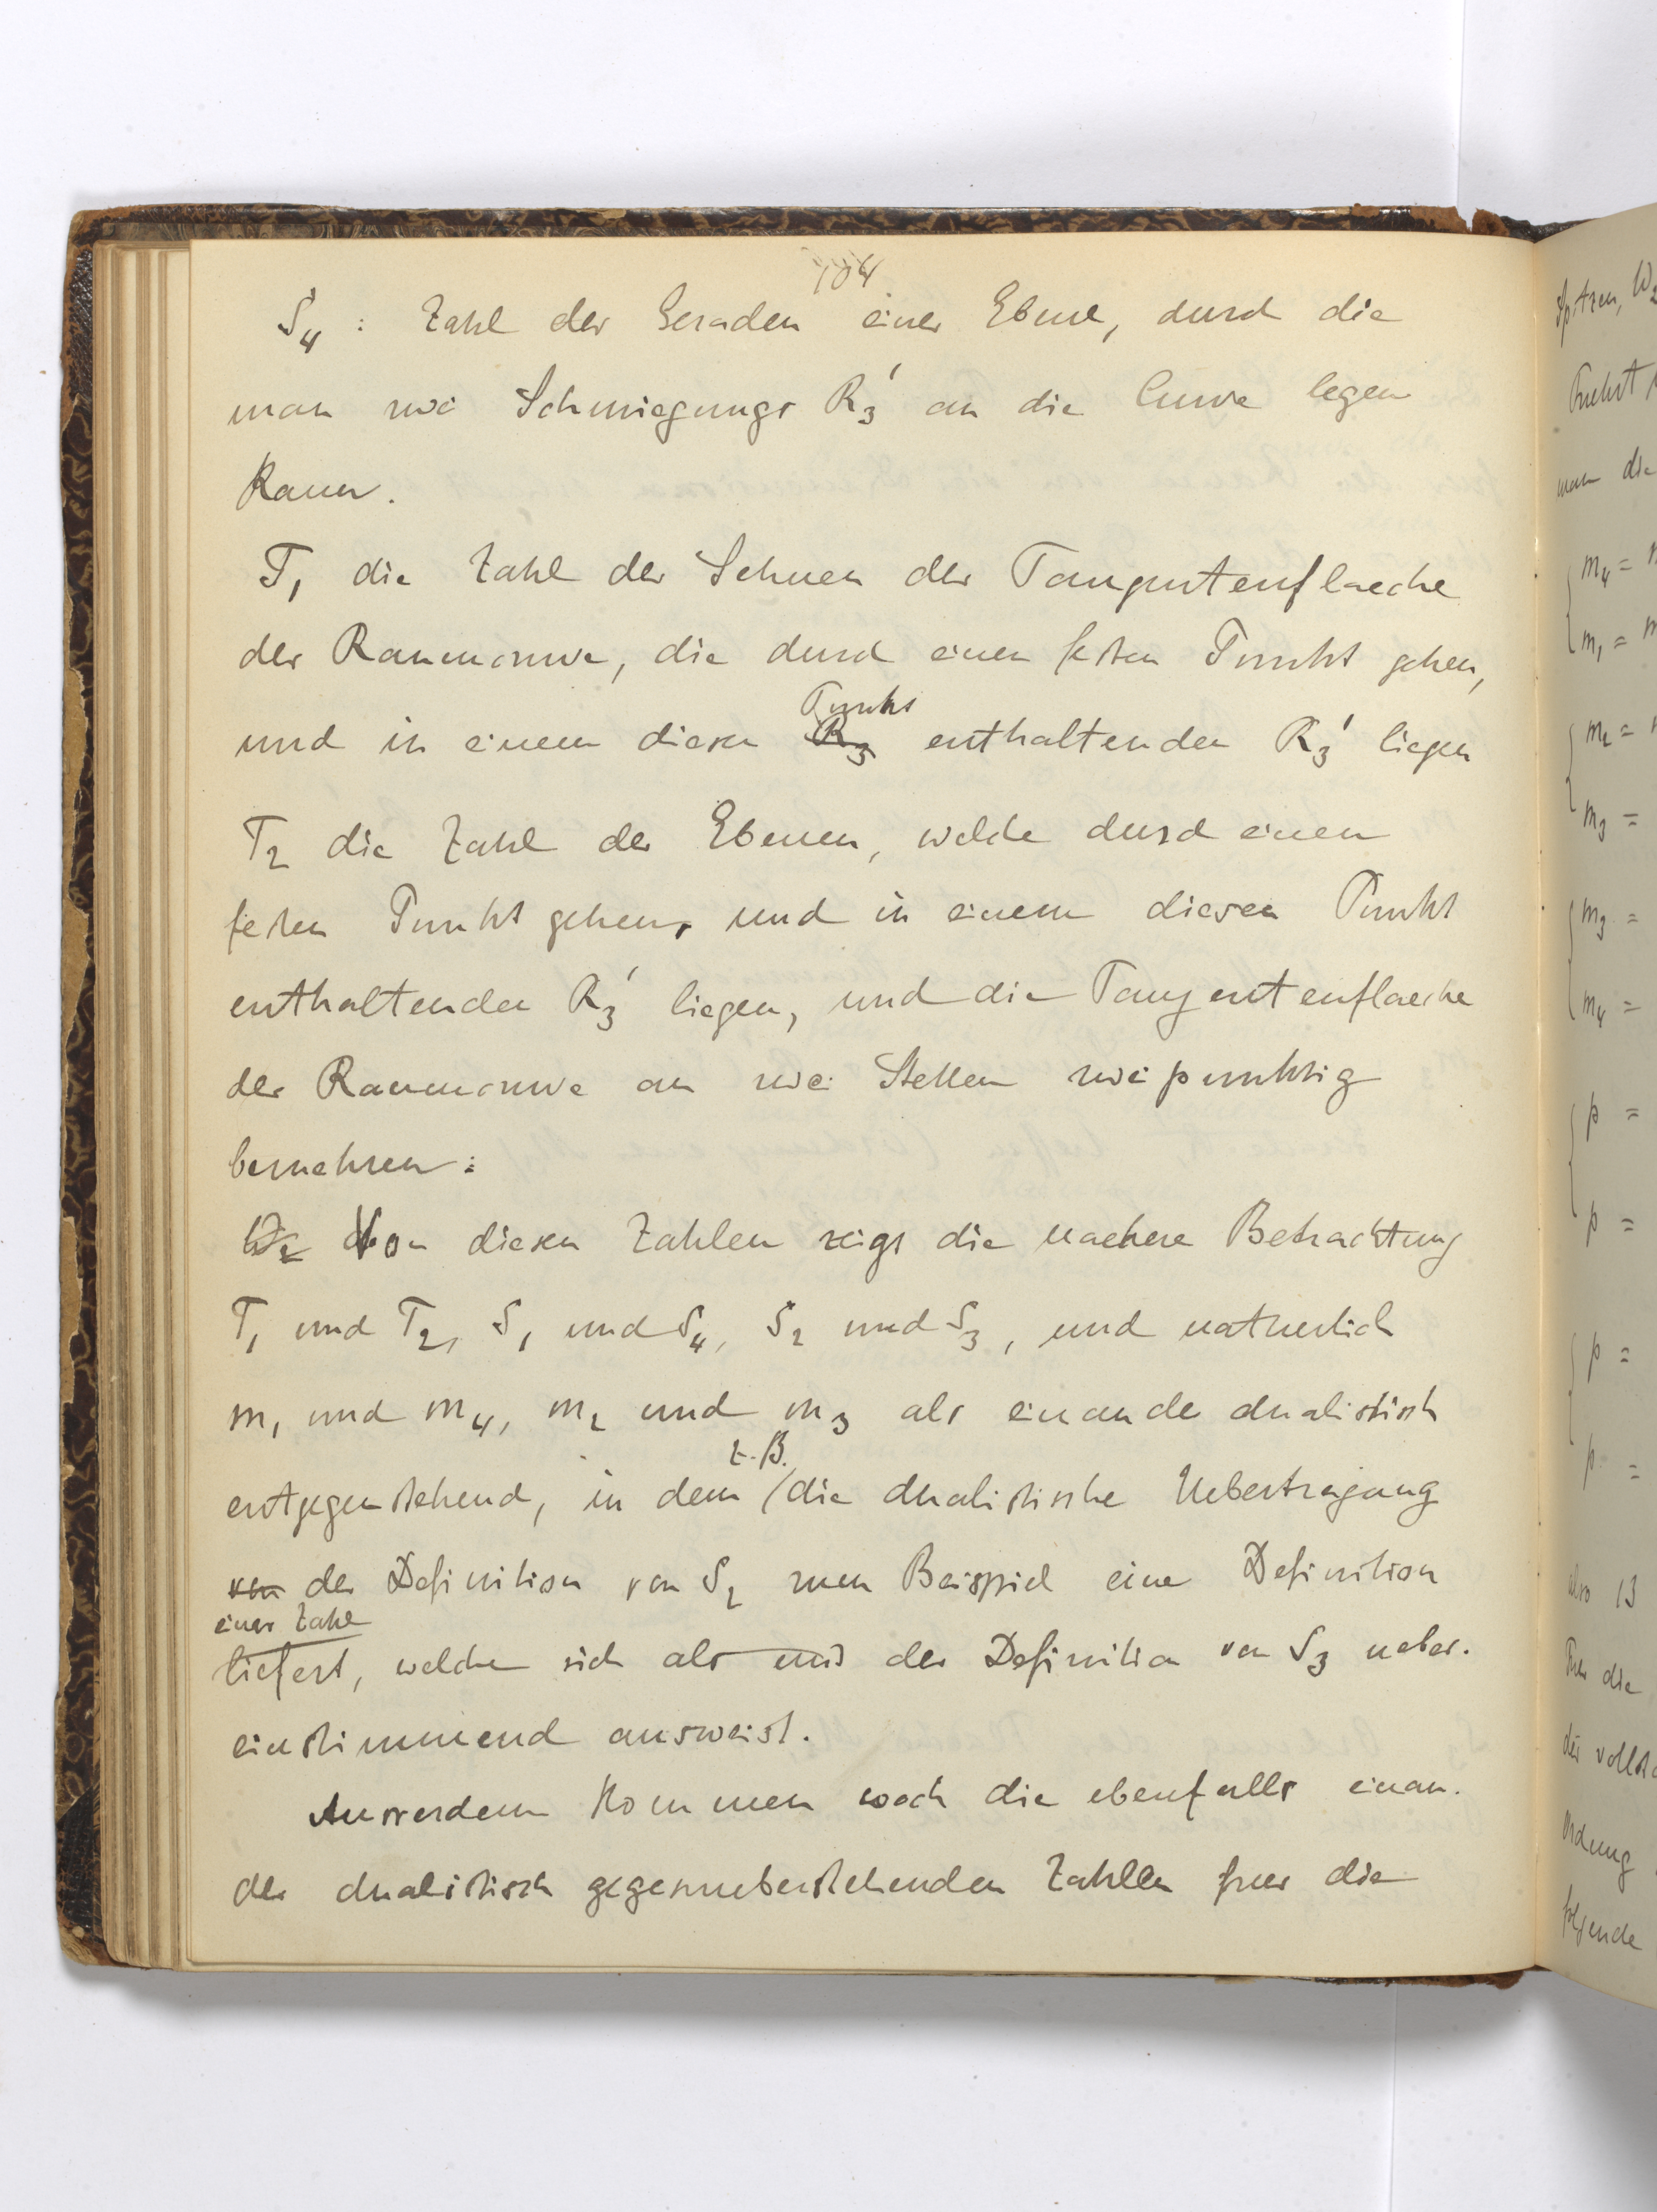 104
S₄ : Zahl der Geraden einer Ebene, durch die
man zwei Schmiegungs R₃' an die Curve legen
kann.
T₁ die Zahl der Sehnen der Tangentenflaeche
der Raumcurve, die durch einen festen Punkt gehen,
Punkt
und in einem diesen R₃ enthaltenden R₃' liegen
T₂ die Zahl der Ebenen, welche durch einen
festen Punkt gehen, und in einem diesen Punkt
enthaltenden R₃' liegen, und die Tangentenflaeche
der Raumcurve an zwei Stellen zweipunktig
beruehren:
Von diesen Zahlen zeigt die naehere Betrachtung
T₁ und T₂, S₁ und S₄, S₂ und S₃, und natuerlich
m₁ und m₄, m₂ und m₃ als einander dualistisch
z.B.
entgegenstehend, in dem die dualistische Uebertragung
von der Definition von S₂ zum Beispiel eine Definition
einer Zahl
liefert, welche sich als mit der Definition von S₃ ueber-
einstimmend ausweist.
Ausserdem kommen noch die ebenfalls einan-
der dualistisch gegenueberstehenden Zahlen fuer die
Spitzen, W₂
man die
m₄ =
m₁ =
m₂ =
m₃ =
m₃ =
m₄ =
p =
p =
p =
p =
also 13
Fuer die
Ordnung
folgende